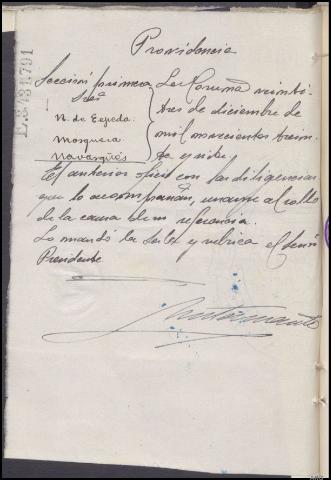 Providencia
Sección primera
Sres
N. de Cepeda
Mosquera
Navasqüés
La Coruña veinti-
tres de diciembre de
mil novecientos trein-
ta y siete
El anterior oficio con las diligencias
que lo acompañan, únanse al rollo
de la causa de su referencia.
Lo mandó la Sala y rubrica el Señor
Presidente